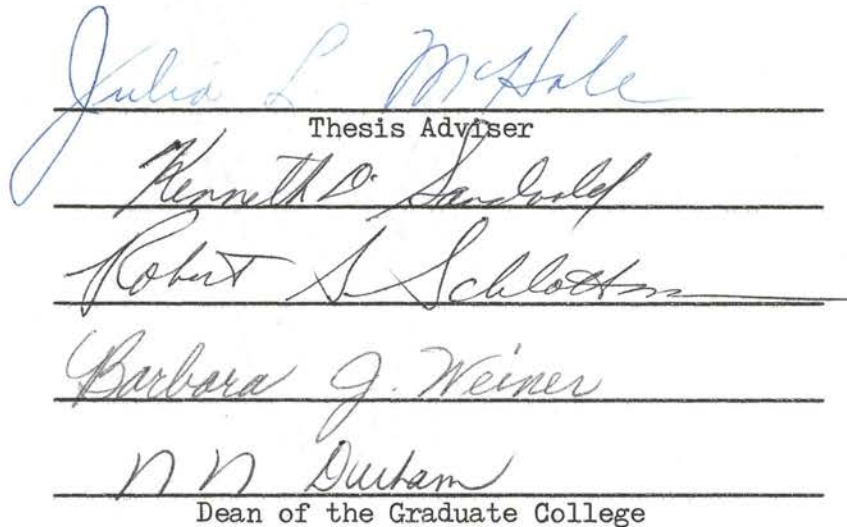 Julia L. McHale
Thesis Adviser
Kenneth D. Sandvold
Robert S. Schlottm
Barbara J. Weiner
N N Durham
Dean of the Graduate College